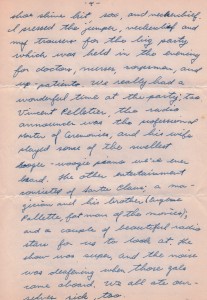 - 4 -
shoe shine kit too, and neckerchief.
I pressed the jumper, neckerchief and
my trousers for the big party
which was held in the evening
for doctors, nurses, corpsmen, and
up-patients. We really had a
wonderful time at the party; too
Vincent Pelletier, the radio
announcer was the professional
Master of Ceremonies, and his wife
played some of the swellest
boogie-woogie piano we've ever
heard. The other entertainment
consisted of Santa Claus; a ma-
gician and his brother (Eugene
Pallette, fat man of the movies),
and a couple of beautiful radio
stars for us to look at. The
show was super and the noise
was deafening when those gals
came aboard. We all ate our-
selves sick, too.